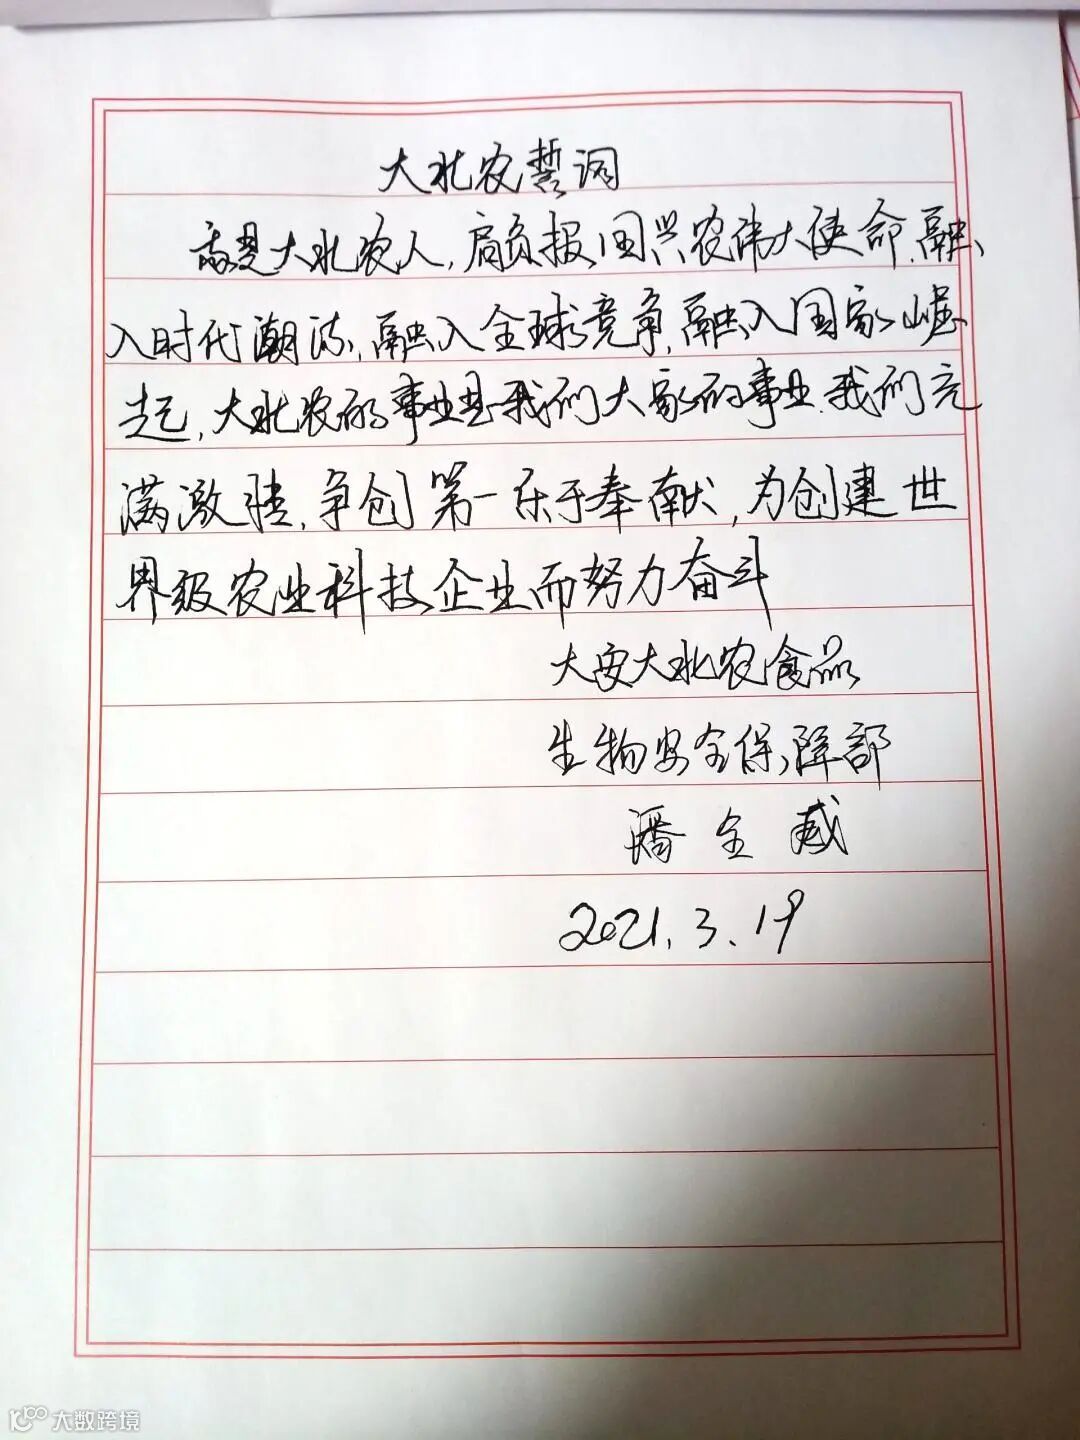 大北农誓词
我是大北农人,肩负报国兴农伟大使命.融
入时代潮流,融入全球竞争,融入国家崛
起,大北农的事业是我们大家的事业.我们充
满激情,争创第一乐于奉献,为创建世
界级农业科技企业而努力奋斗
大安大北农食品
生物安全保障部
潘全威
2021.3.19
大数跨境